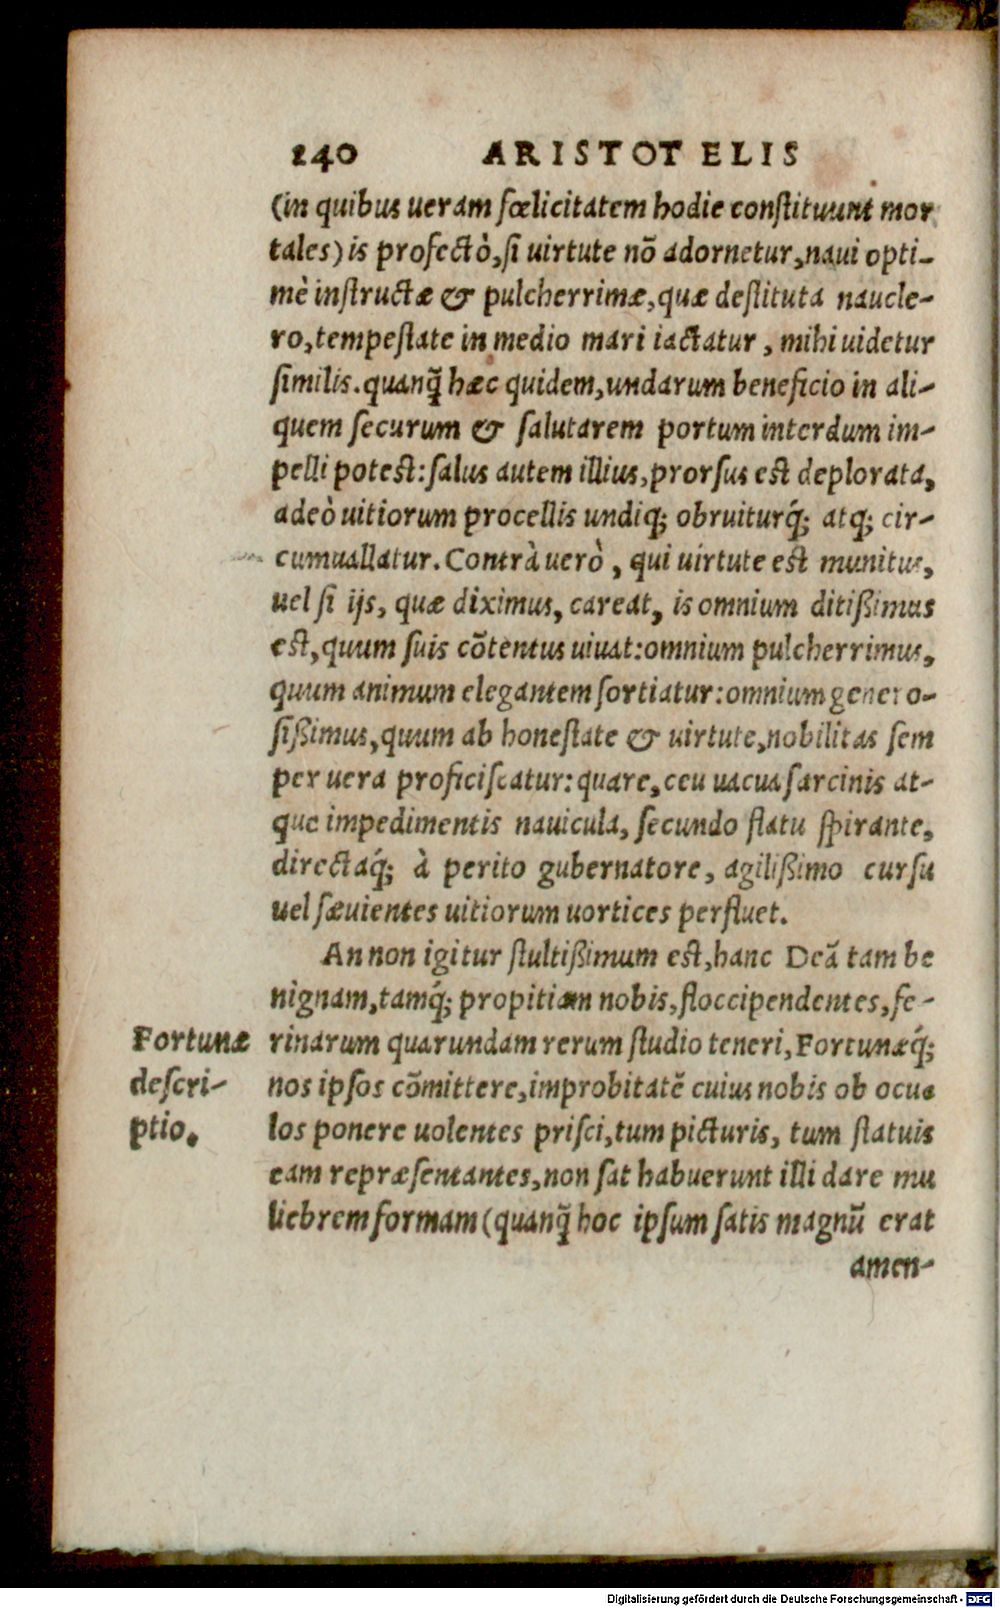 240 ARISTOTELIS
(in quibus ueram fœlicitatem hodie constituunt mor
tales) is profectò, si uirtute nõ adornetur, naui opti-
mè instructæ & pulcherrimæ, quæ destituta naucle-
ro, tempestate in medio mari iactatur, mihi uidetur
similis. quanq̃ hæc quidem, undarum beneficio in ali-
quem securum & salutarem portum interdum im-
pelli potest: salus autem illius, prorsus est deplorata,
adeò uitiorum procellis undiq; obruiturq́; atq; cir-
cumuallatur. Contrà uerò, qui uirtute est munitus,
uel si ijs, quæ diximus, careat, is omnium ditißimus
est, quum suis cõtentus uiuat: omnium pulcherrimus,
quum animum elegantem sortiatur: omnium genero-
sißimus, quum ab honestate & uirtute, nobilitas sem
per uera proficiscatur: quare, ceu uacua sarcinis at-
que impedimentis nauicula, secundo flatu spirante,
directaq́; à perito gubernatore, agilißimo cursu
uel sæuientes uitiorum uortices perfluet.
An non igitur stultißimum est, hanc Deã tam be
nignam, tamq́; propitiam nobis, floccipendentes, fe-
Fortunæ rinarum quarundam rerum studio teneri, Fortunæq́;
descri- nos ipsos cõmittere, improbitatẽ cuius nobis ob ocu-
ptio. los ponere uolentes prisci, tum picturis, tum statuis
eam repræsentantes, non sat habuerunt illi dare mu
liebrem formam (quanq̃ hoc ipsum satis magnũ erat
amen-
Digitalisierung gefördert durch die Deutsche Forschungsgemeinschaft - DFG